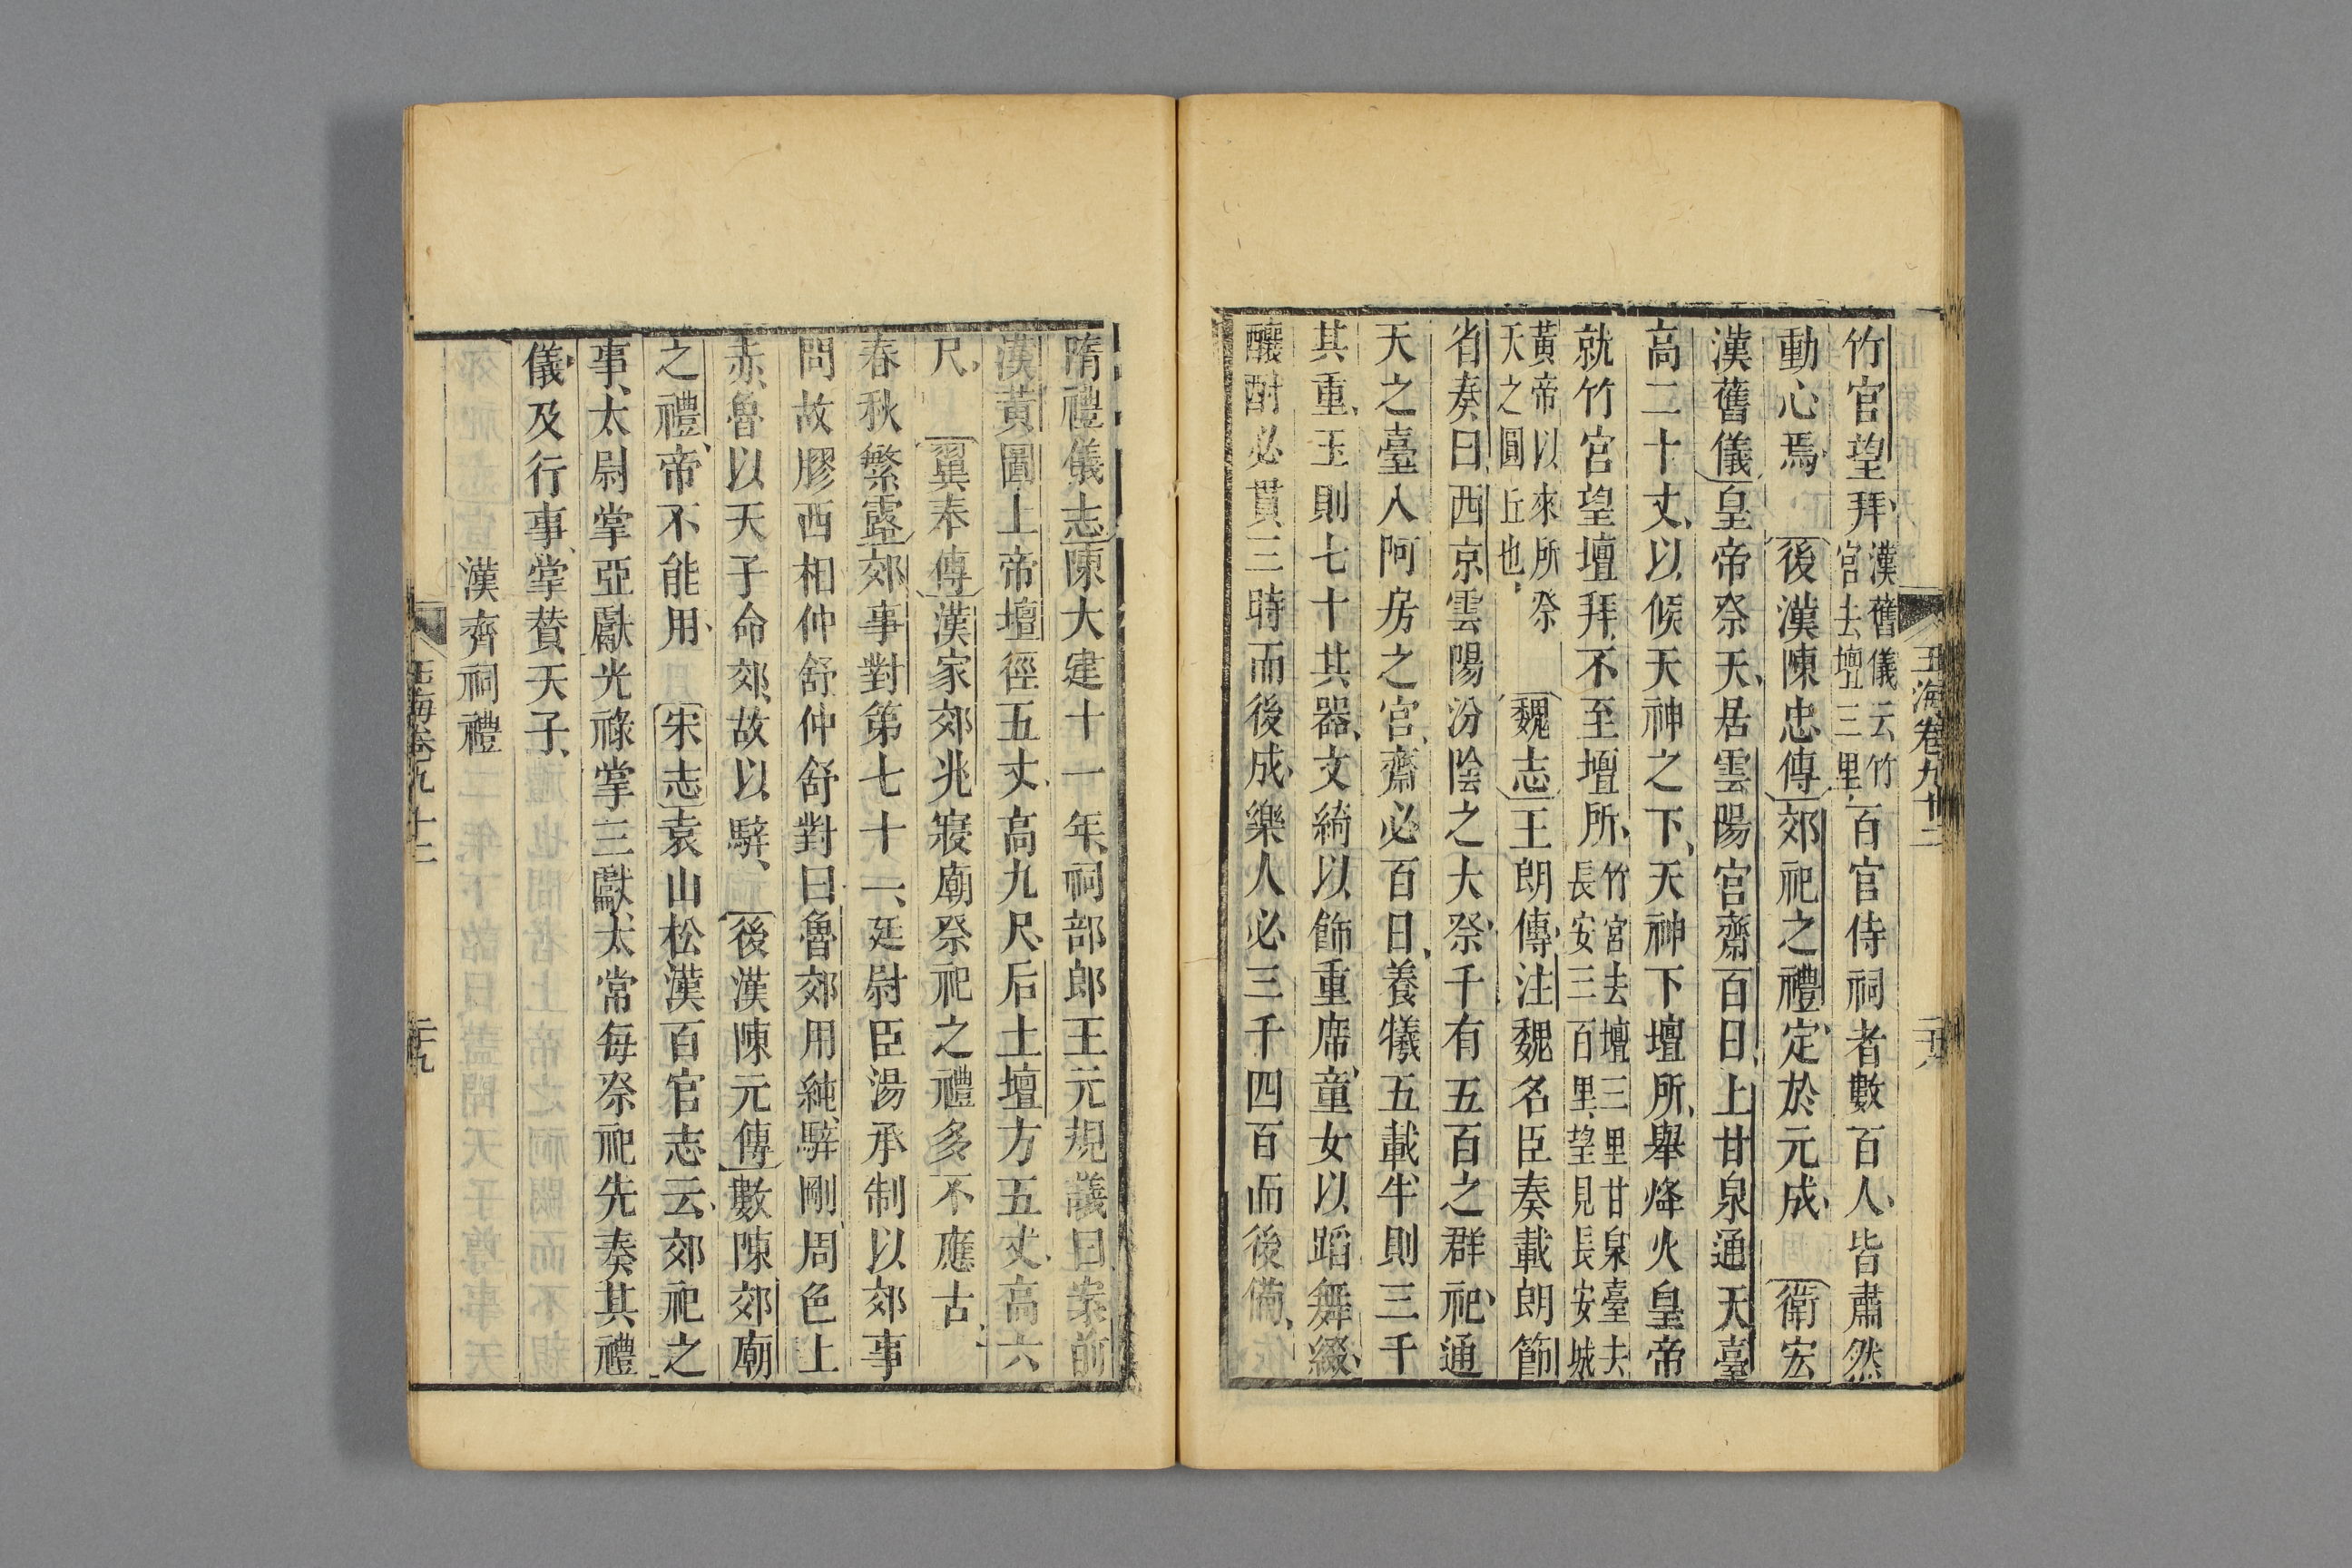 竹官望拜漢舊儀云竹宮去壇三里百官侍祠者數百人皆肅然
動心焉後漢陳忠傳郊祀之禮定於元成衛宏
漢舊儀皇帝祭天居雲陽宮齋百日上甘泉通天臺
高二十丈以候天神之下天神下壇所舉烽火皇帝
就竹宮望壇拜不至壇所竹宮去壇三里甘泉臺去長安三百里望見長安城
黃帝以來所祭天之圓丘也魏志王朗傳注魏名臣奏載朗節
省奏曰西京雲陽汾陰之大祭千有五百之群祀通
天之臺入阿房之宮齋必百日養犧五載牛則三千
其重玉則七十其器文綺以飾重席童女以蹈舞綴
釀酎必貫三時而後成樂人必三千四百而後備
玉海卷九十二
隋禮儀志陳大建十一年祠部郎王元規議曰案前
漢黃圖上帝壇徑五丈高九尺后土壇方五丈高六
尺翼奉傳漢家郊兆寢廟祭祀之禮多不應古
春秋繁露郊事對第七十一廷尉臣湯承制以郊事
問故膠西相仲舒仲舒對曰魯郊用純騂剛周色上
赤魯以天子命郊故以騂後漢陳元傳數陳郊廟
之禮帝不能用宋志袁山松漢百官志云郊祀之
事太尉掌亞獻光祿掌三獻太常每祭祀先奏其禮
儀及行事掌贊天子
漢齊祠禮
玉海卷九十二
二十九